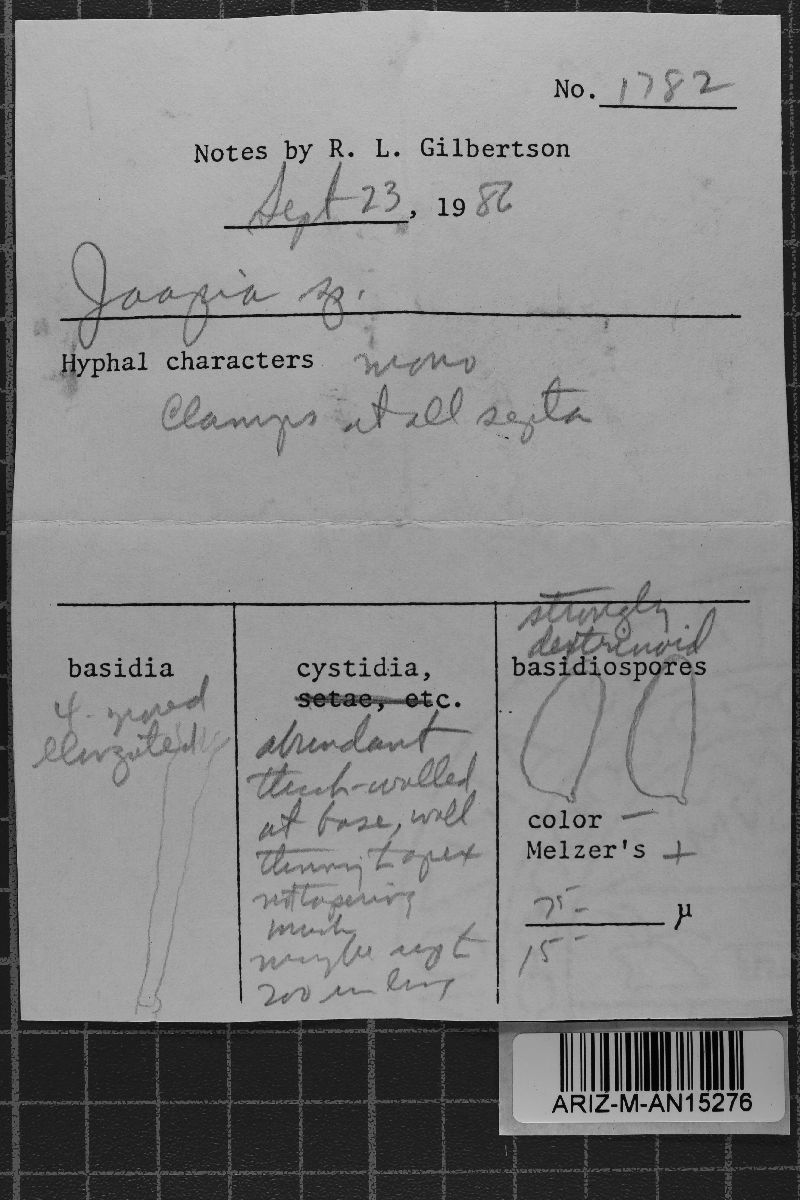 No. 1782
Notes by R. L. Gilbertson
Sept 23, 1986
Jaapia sp.
Hyphal characters mono
Clamps at all septa
strongly
dextrinoid
basidia
4-spored
elongated
cystidia,
setae, etc.
abundant
thick-walled
at base, wall
thinning t apex
not tapering
much
maybe up t
200 um long
basidiospores
color —
Melzer's +
75- µ
15-
ARIZ-M-AN15276